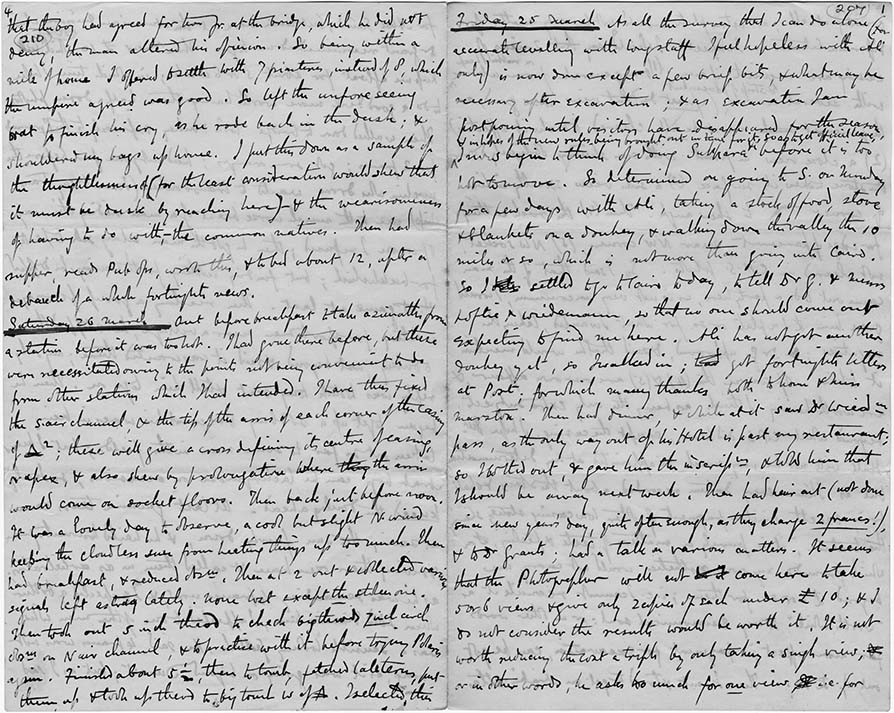 4
that the boy had agreed for two fr. at the bridge, which he did not
210
deny, the man altered his opinion. So being within a
mile of home I offered to settle with 7 piastres, instead of 8, which
the umpire agreed was good. So left the unforeseeing
to finish his cry, as he rode back in the dusk; &
shouldered my bags up home. I put this down as a sample of
the thoughtlessness (for the least consideration would shew that
it must be dusk by reaching here) & the wearisomeness
of having to do with the common natives. Then had
supper, read, wrote this, & to bed about 12, after a
debauch of a whole fortnights news.
Saturday 26 March out before breakfast to take azimuths from
a station before it was too hot. I had gone there before, but these
were necessitated owing to the points not being convenient to do
from other stations which I had intended. I have thus fixed
the S. air channel, & the top of the arris of each corner of the casing
of Δ2; these will give a cross defining its centre of casing,
or apex, & also shew by prolongation where the arris
would come on socket floors. Then back just before noon.
It was a lovely day to observe, a cool but slight N wind
keeping the cloudless sun from heating things up too much. Then
had breakfast, & reduced obsns. Then at 2 out & collected various
signals left lately, none lost except the stolen one.
Then took out 5 inch theod to check
obsns on N air channel & to practice with it before trying Polaris
again. Finished about 5½, then to tomb, fetched lanterns, put
them up & took up theod to big tomb W of Δ. I selected this
(209) 1
Friday 25 March As all the survey that I can do alone (for
accurate levelling with long staff I feel hopeless with Ali
only) is now done except a few brief bits, & what may be
necessary after excavation; & as excavation I am
postponing until visitors have disappeared for the season
& in hopes of the new rules being brought out in time for us so as to get official leave
I must begin to think of doing Sakkara before it is too
hot to move. So determined on going to S. on Monday
for a few days with Ali, taking a stock of food, stove
& blankets on a donkey, & walking down the valley the 10
miles or so, which is not more than going into Cairo.
So I settled to go to Cairo to day, to tell Dr G. & Messrs
Loftie & Weidemann, so that no one should come out
expecting to find me here. Ali has not got another
donkey yet, so I walked in; got fortnights letters
at Post, for which many thanks both to home & Miss
Marston. Then had dinner, & while at it saw Dr Weidn
pass, as the only way out of his Hotel is past my restaurant,
so I bolted out & gave him the inscripn, & told him that
I should be away next week. Then had hair cut (not done
since new year's day, quite often enough, as they charge 2 francs!)
& to Dr Grants; had a talk on various matters. It seems
that the Photographer will not come here to take
5 or 6 views & give only 2 copies of each under £10; & I
do not consider the results would be worth it. It is not
worth reducing the cost a trifle by only taking a single view;
or in other words, he asks too much for one view i.e. for